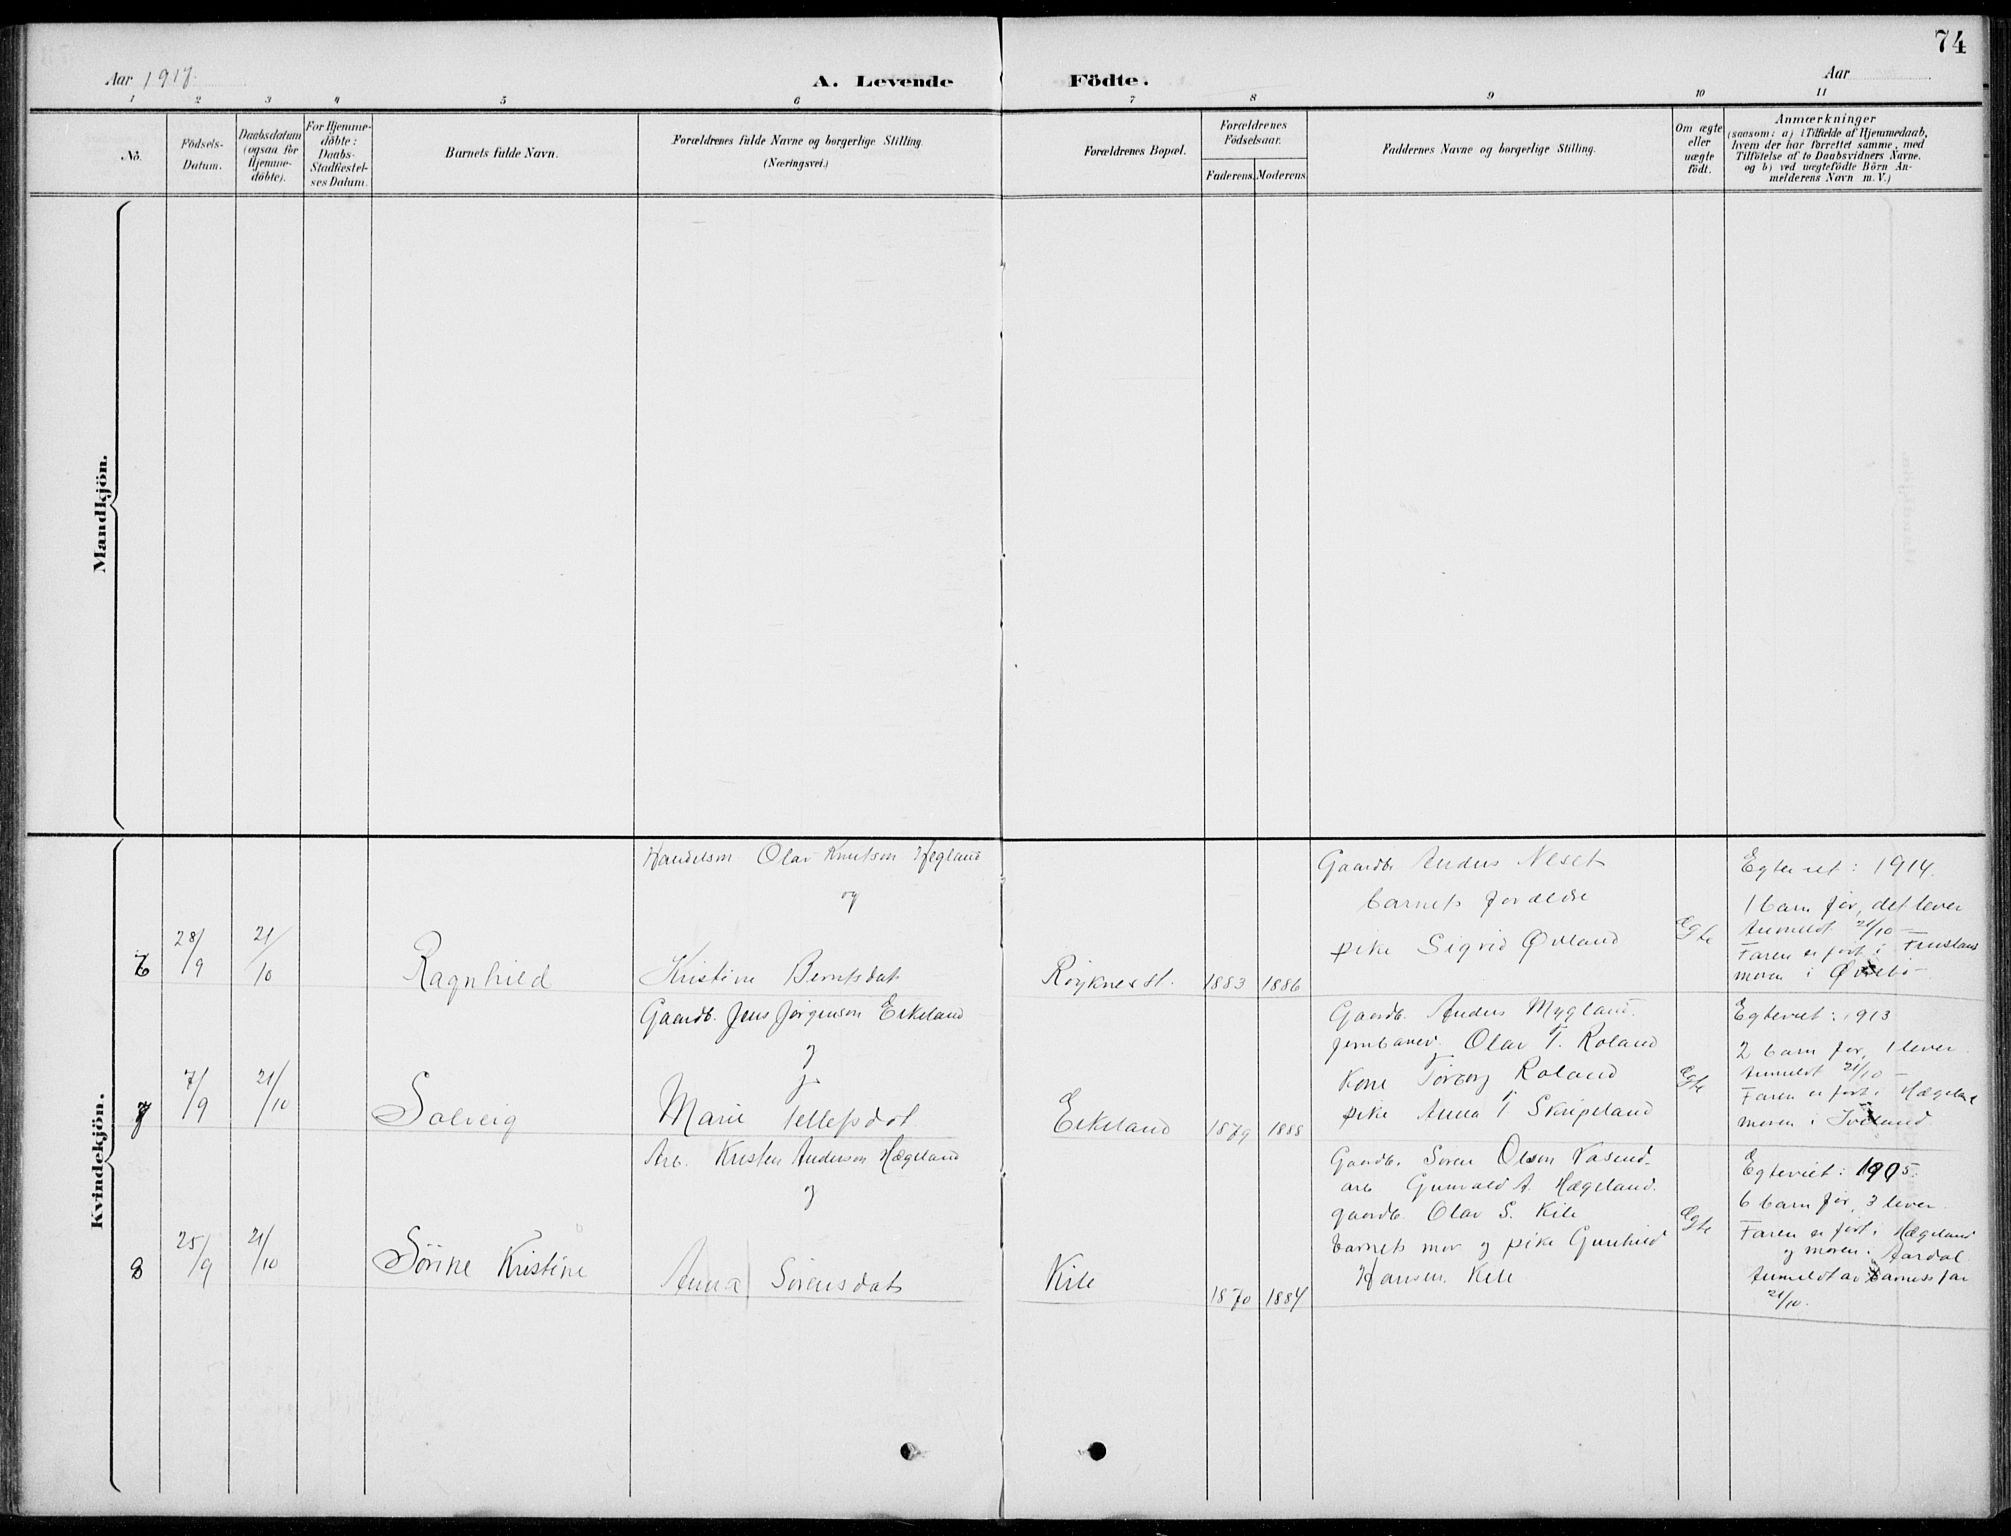 74
Aar 1917.
A. Levende Födte.
Aar
1 2 3 4 5 6 7 8 9 10 11
Nô.
Födsels-
Datum.
Daabsdatum
(ogsaa for
Hjemme-
döbte).
For Hjemme-
döbte:
Daabs-
Stadfæstel-
ses Datum.
Barnets fulde Navn.
Forældrenes fulde Navne og borgerlige Stilling
(Næringsvei.)
Forældrenes Bopæl.
Forældrenes
Födselsaar.
Faderens. Moderens
Faddernes Navne og borgerlige Stilling.
Om ægte
eller
uægte
födt.
Anmærkninger
(saasom: a) i Tilfælde af Hjemmedaab,
hvem der har forrettet samme, med
Tilföielse af to Daabsvidners Navne.
og b) ved uægtefödte Börn An-
melderens Navn m. V.)
Mandkjön.
Kvindekjön.
6
28/9
21/10
Ragnhild
Handelsm Olav Knutson Hægland
og
Kristine Berntsdat
Røyknesst.
1883 1886
Gaardb. Anders Neset
barnets foreldre
pike Sigrid Øvland
Ægte
Egteviet: 1914.
1 barn før, det lever
Anmeldt 21/10 –
Faren er født i
moren i Øvrebø –
7
7/9
21/10
Solveig
Gaardb. Jens Jørgenson Eikeland
og
Marie Tellefsdat.
Eikeland
1879 1888
Gaardb. Anders Mygland.
jernbanev. Olav T. Roland
Kone Torborg Roland
pike Anna T Skripeland
Ægte
Egteviet: 1913
2 barn før, 1 lever
Anmeldt 21/10 –
Faren er født i Hægeland
moren i Iveland
8
25/9
21/10
Sørine Kristine
Arb. Kristen Anderson Hægeland
og
Anna Sørensdat
Kile
1870 1884
Gaardb. Søren Olson Vasend.
arb Gunvald A. Hægeland.
gaardb. Olav S. Kile
barnets mor og pike Gunhild
Hansen Kile
Ægte
Egteviet: 1905.
6 barn før, 3 lever.
Faren er født i Hægeland
og moren i Aardal
Anmeldt av barnets far
21/10.